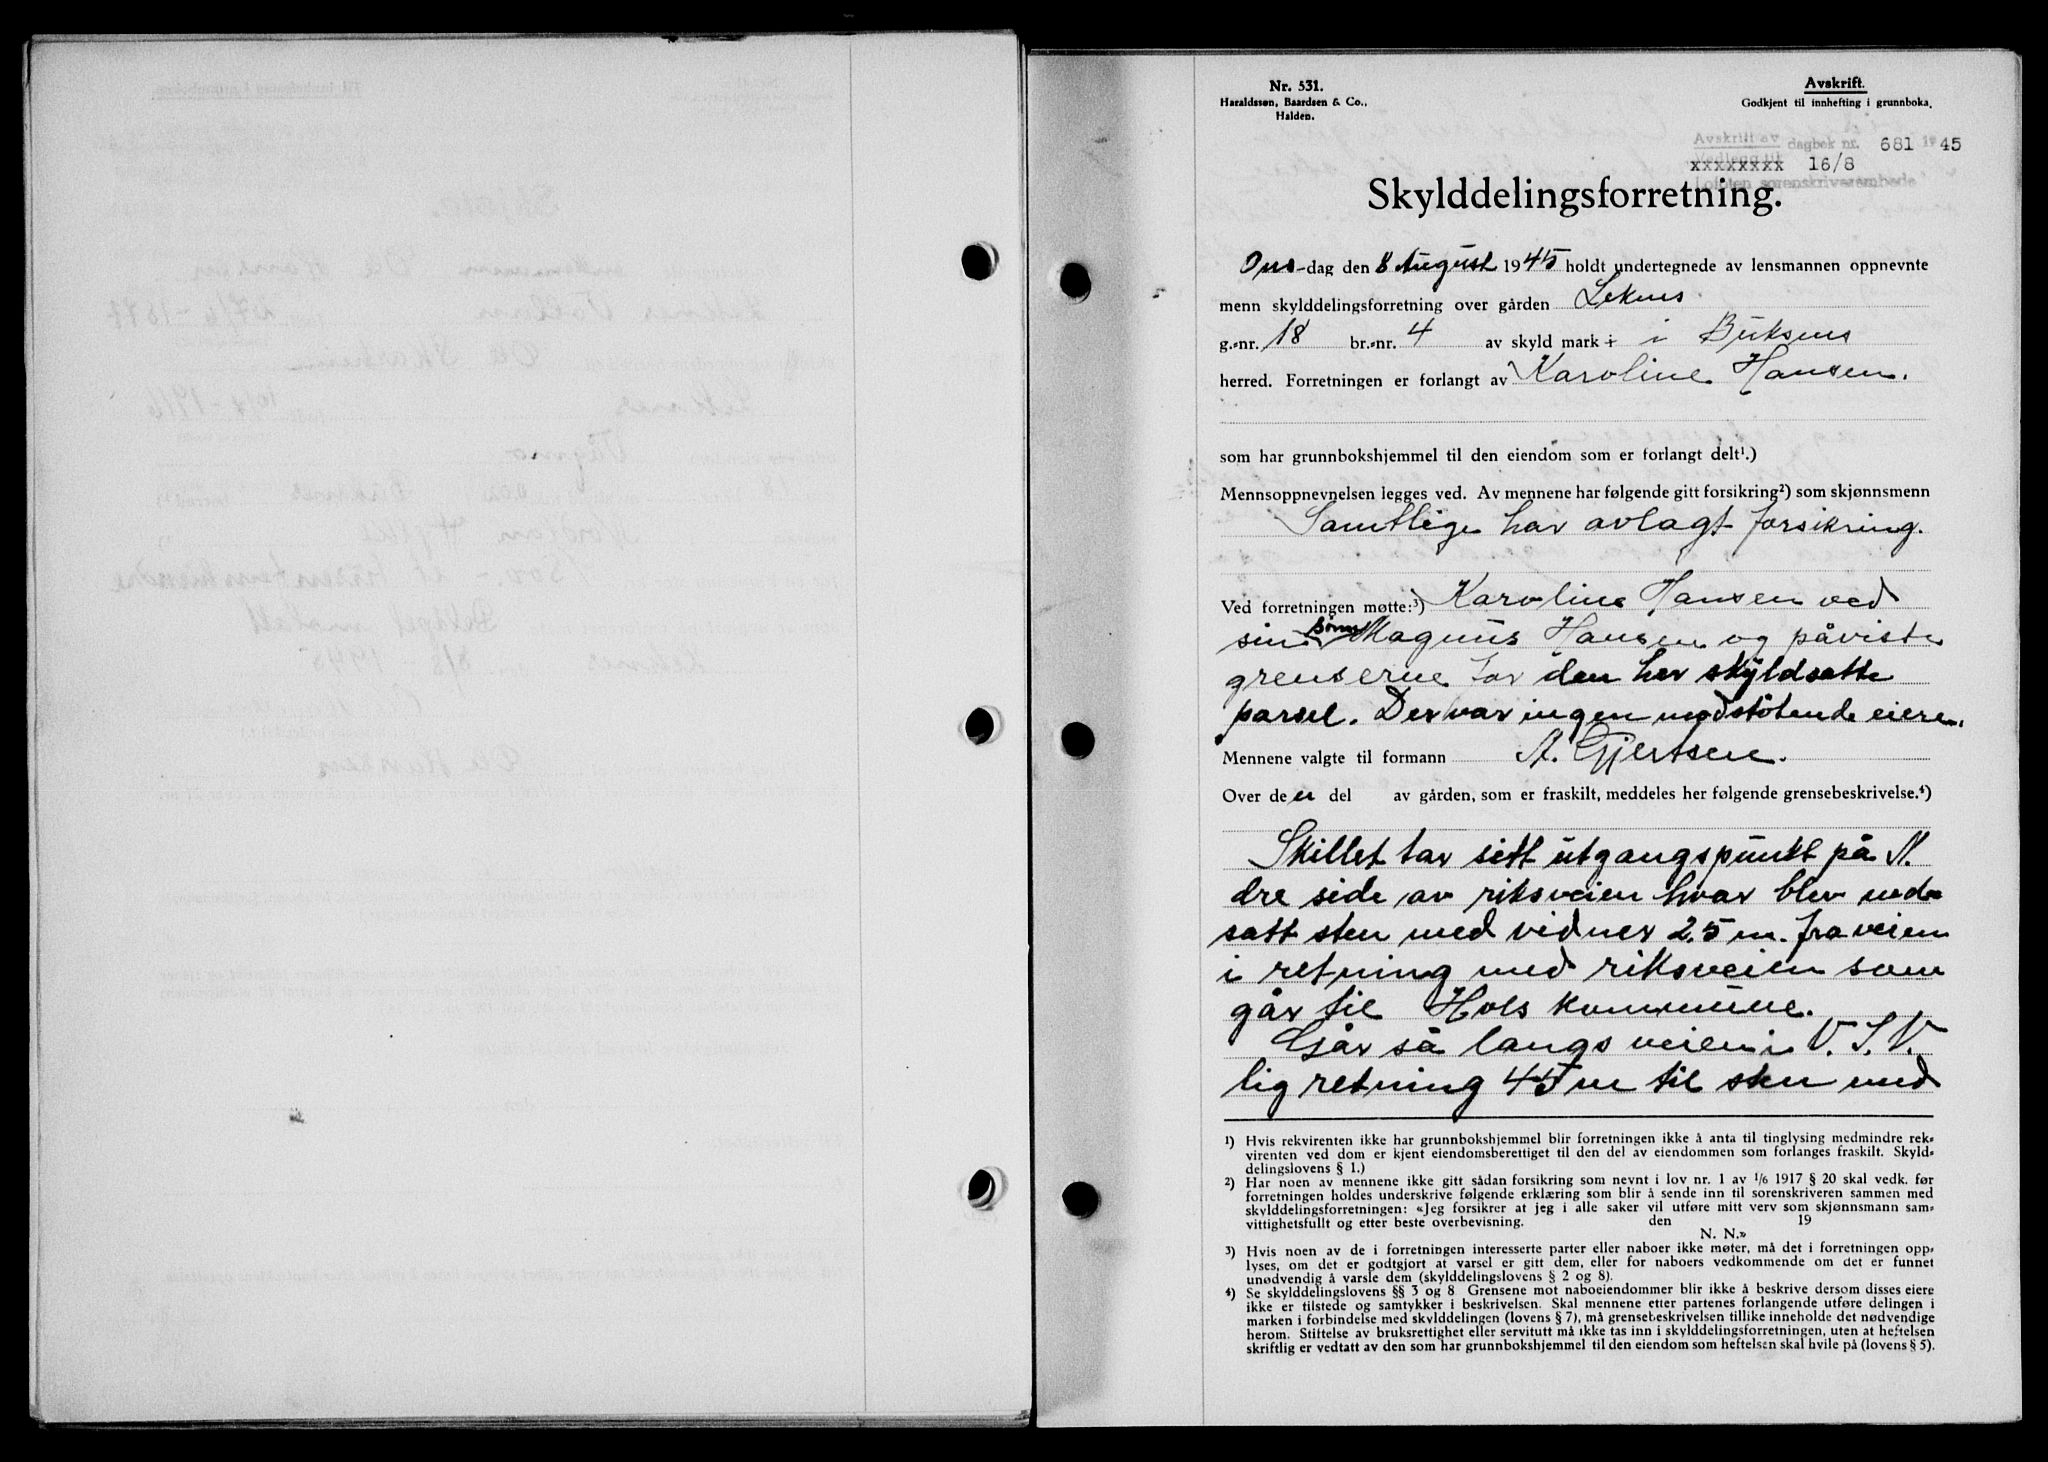 Nr. 531.
Haraldssøn, Baardsen & Co.,
Halden.
Avskrift.
Godkjent til innhefting i grunnboka.
Avskrift av dagbok nr. 681 1945
Vedlegg til
xxxxxxxx 16/8
Lofoten sorenskriverembede
Skylddelingsforretning.
Ons-dag den 8 August 1945 holdt undertegnede av lensmannen oppnevnte
menn skylddelingsforretning over gården Leknes
g.-nr. 18 br.-nr. 4 av skyld mark i Buksnes
herred. Forretningen er forlangt av Karoline Hansen.
som har grunnbokshjemmel til den eiendom som er forlangt delt¹.)
Mennsoppnevnelsen legges ved. Av mennene har følgende gitt forsikring²) som skjønnsmenn
Samtlige har avlagt forsikring.
Ved forretningen møtte:³) Karoline Hansen ved
sin sønn Magnus Hansen og påviste
grenserne for den her skyldsatte
parsel. Der var ingen modstøtende eiere.
Mennene valgte til formann A. Gjertsen.
Over den del av gården, som er fraskilt, meddeles her følgende grensebeskrivelse.⁴)
Skillet tar sitt utgangspunkt på N.
dre side av riksveien hvor blev ned-
satt sten med vidner 2,5 m. fra veien
i retning med riksveien som
går til Hols kommune.
Går så langs veien i V. S. V.
lig retning 45 m til sten med
1) Hvis rekvirenten ikke har grunnbokshjemmel blir forretningen ikke å anta til tinglysing medmindre rek-
virenten ved dom er kjent eiendomsberettiget til den del av eiendommen som forlanges fraskilt. Skyld-
delingslovens § 1.)
2) Har noen av mennene ikke gitt sådan forsikring som nevnt i lov nr. 1 av 1/6 1917 § 20 skal vedk. før
forretningen holdes underskrive følgende erklæring som blir å sende inn til sorenskriveren sammen med
skylddelingsforretningen: «Jeg forsikrer at jeg i alle saker vil utføre mitt verv som skjønnsmann sam-
vittighetsfullt og etter beste overbevisning. den 19
N. N.»
3) Hvis noen av de i forretningen interesserte parter eller naboer ikke møter, må det i forretningen opp-
lyses, om det er godtgjort at varsel er gitt dem, eller for naboers vedkommende om det er funnet
unødvendig å varsle dem (skylddelingslovens § 2 og 8).
4) Se skylddelingslovens §§ 3 og 8. Grensene mot naboeiendommer blir ikke å beskrive dersom disses eiere
ikke er tilstede og samtykker i beskrivelsen. Skal mennene etter partenes forlangende utføre delingen i
marken i forbindelse med skylddelingen (lovens § 7), må grensebeskrivelsen tillike inneholde det nødvendige
herom. Stiftelse av bruksrettighet eller servitutt må ikke tas inn i skylddelingsforretningen, uten at heftelsen
skriftlig er vedtatt av den som har grunnbokshjemmel til den eiendom som heftelsen skal hvile på (lovens § 5).